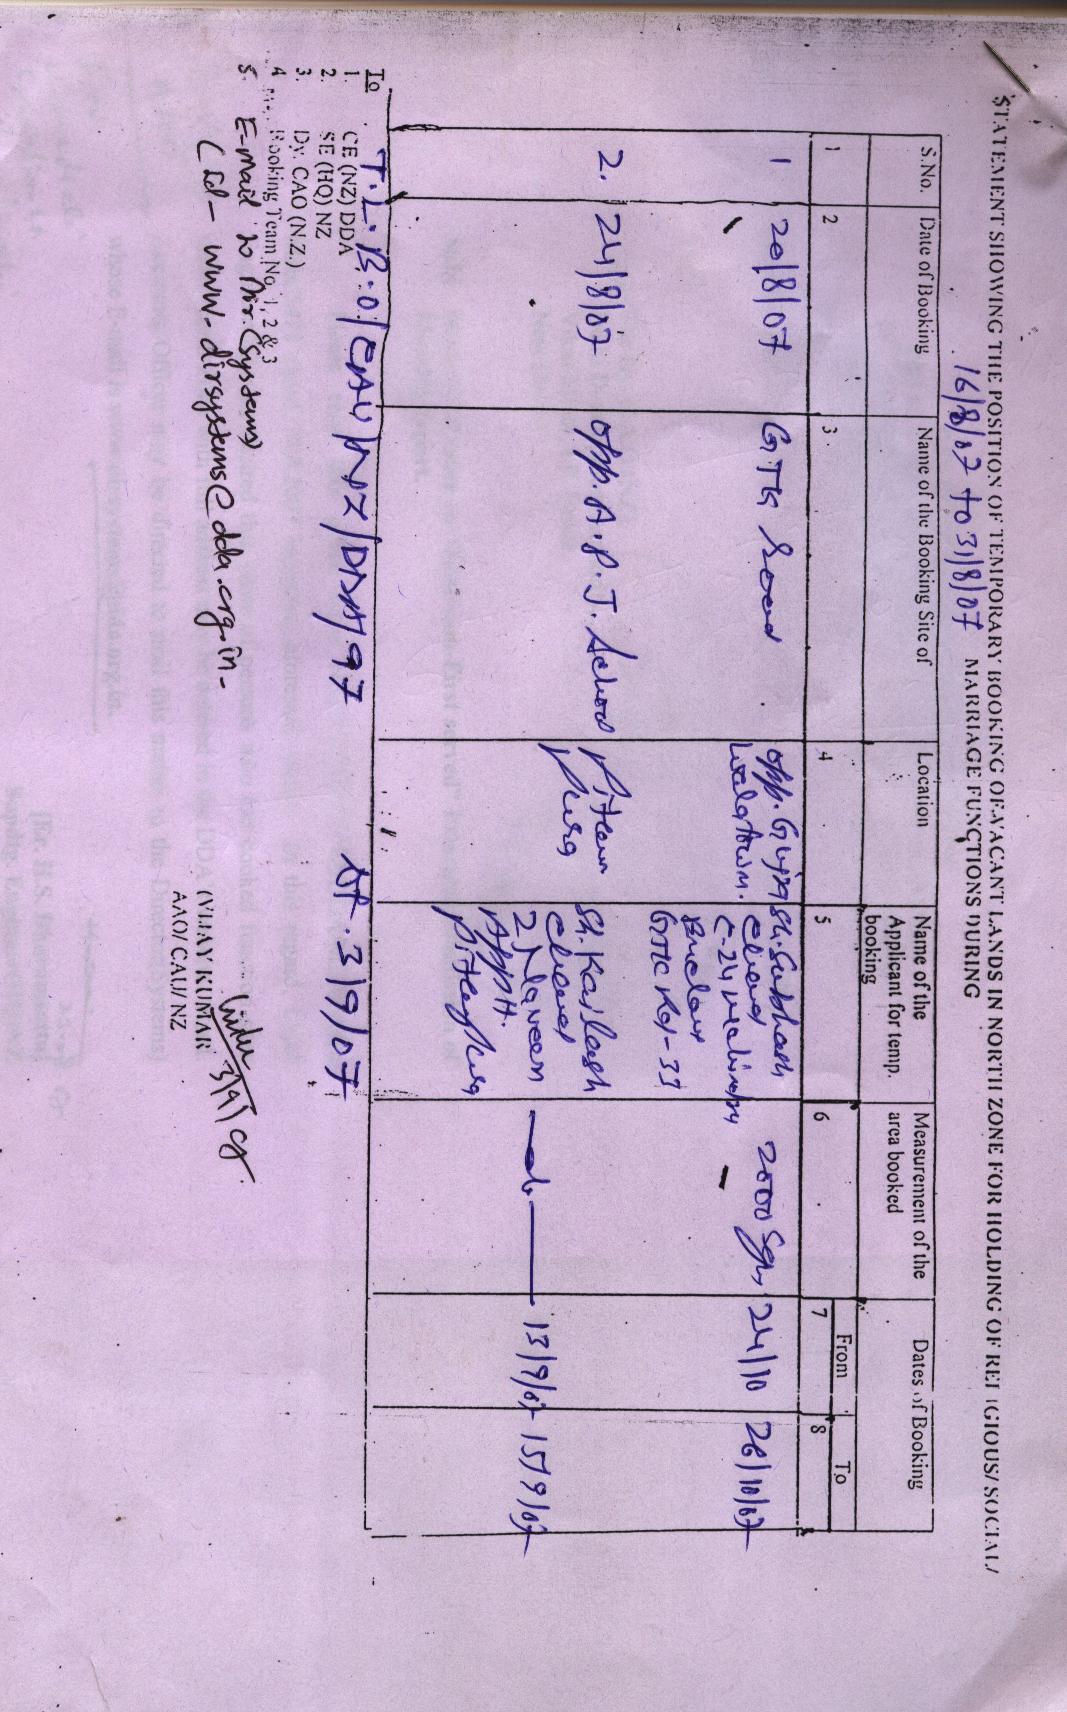 STATEMENT SHOWING THE POSITION OF TEMPORARY BOOKING OF VACANT LANDS IN NORTH ZONE FOR HOLDING OF RELIGIOUS/ SOCIAL/
16/8/07 to 31/8/07 MARRIAGE FUNCTIONS DURING
S.No. Date of Booking Name of the Booking Site of Location Name of the Applicant for temp. booking Measurement of the area booked Dates of Booking
From To
1 2 3 4 5 6 7 8
1 20/8/07 GTK Road Opp. Gujra 2000 Sqm 24/10 26/10/07
Sh. Subhash
Chand
C-24
GTK Rd-33
2. 24/8/07 Opp. A.P.J. School Pitam Sh. Kailash
Pura Chand
2, Naveen
Appt. 13/9/07 15/9/07
Pitam Pura
T.L.B.O/CAU/NZ/DDA/97 Dt. 3/9/07
To
1. CE (NZ) DDA
2. SE (HQ) NZ
3. Dy. CAO (N.Z.)
4. Booking Team No. 1, 2 & 3
5. E-mail to Dir. (Systems)
(Id - www.dirsystems@dda.org.in-
3/9/07
(VIJAY KUMAR)
AAO/ CAU/ NZ